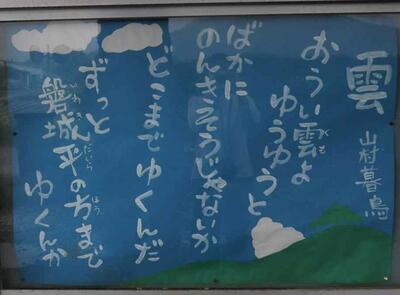 雲
山村暮鳥
おうい雲よ
ゆうゆうと
ばかに
のんきそうじゃないか
どこまでゆくんだ
ずっと
磐城平の方まで
ゆくんか